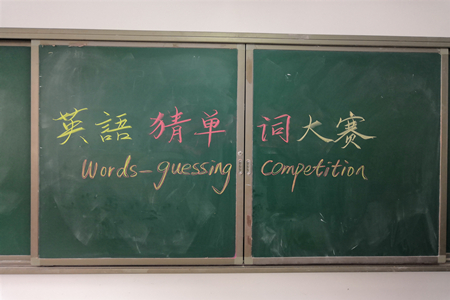 英語猜单词大赛
Words-guessing competition